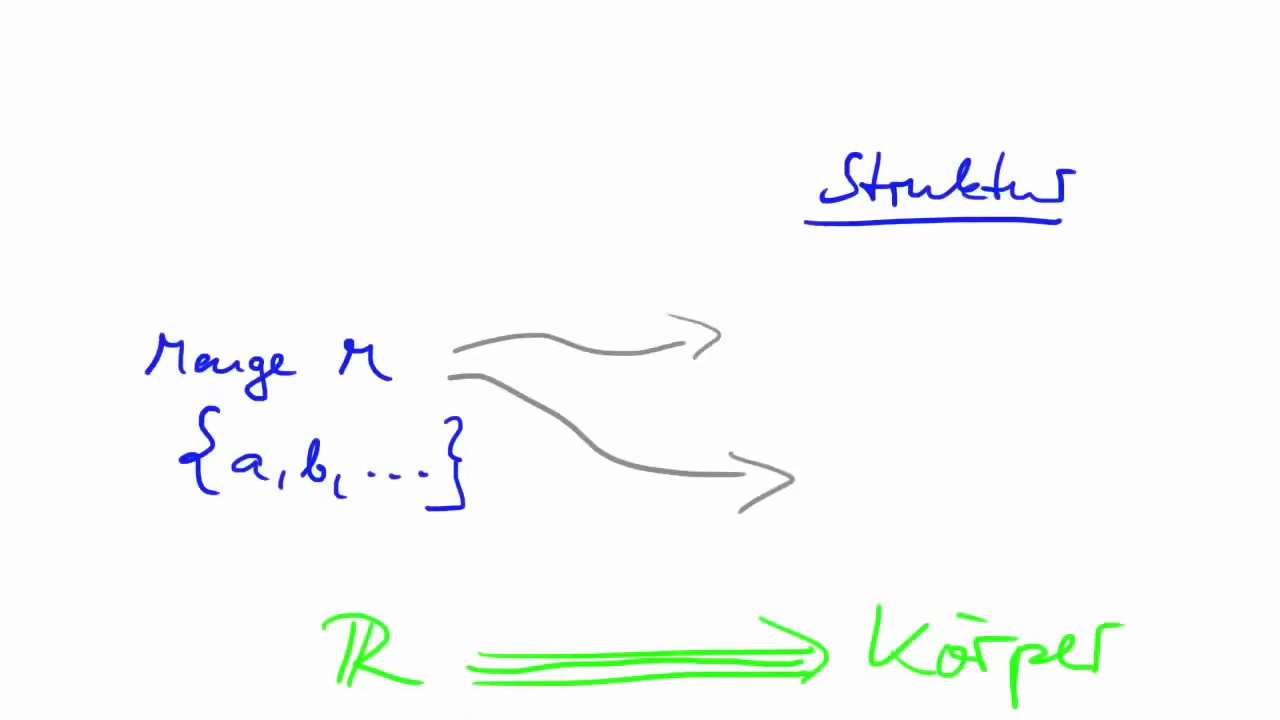 Struktur
Menge M
{a, b, ...}
ℝ ⇒ Körper